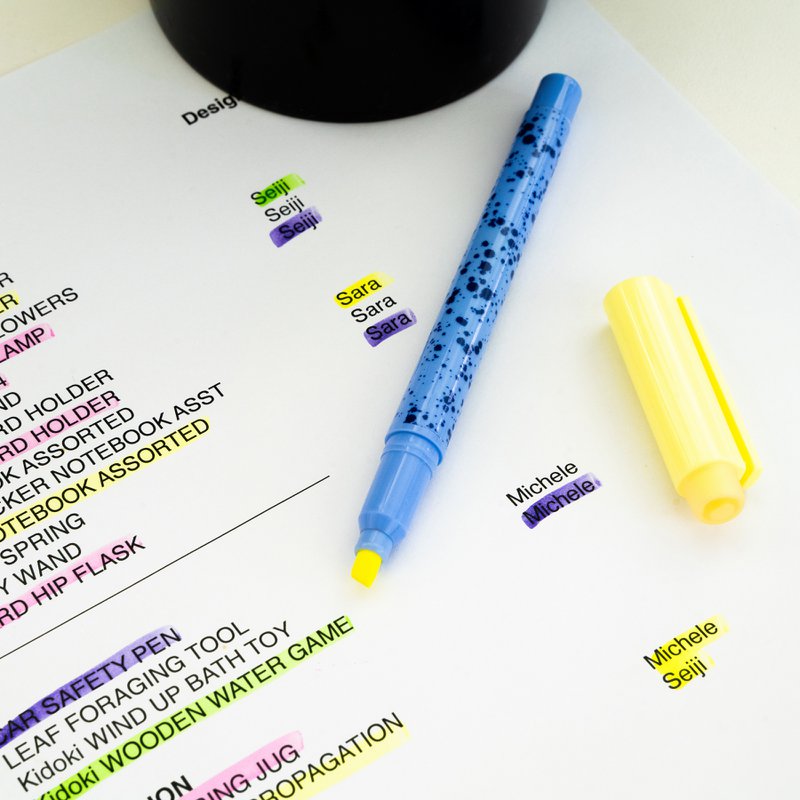 Desig
Seiji
Seiji
Seiji
Sara
Sara
Sara
R
ER
LOWERS
LAMP
4
ND
RD HOLDER
RD HOLDER
OK ASSORTED
CKER NOTEBOOK ASST
OTEBOOK ASSORTED
SPRING
Y WAND
RD HIP FLASK
Michele
Michele
CAR SAFETY PEN
LEAF FORAGING TOOL
Kidoki WIND UP BATH TOY
Kidoki WOODEN WATER GAME
Michele
Seiji
ION
GING JUG
PROPAGATION